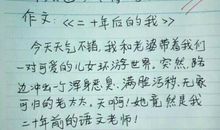 作文：《二十年后的我》
今天天气不错，我和老婆带着我们
一对可爱的儿女环游世界。突然，路
边冲出一个浑身恶臭、满脸污秽、无家
可归的老太太，天啊！她竟然是我
二十年前的语文老师！